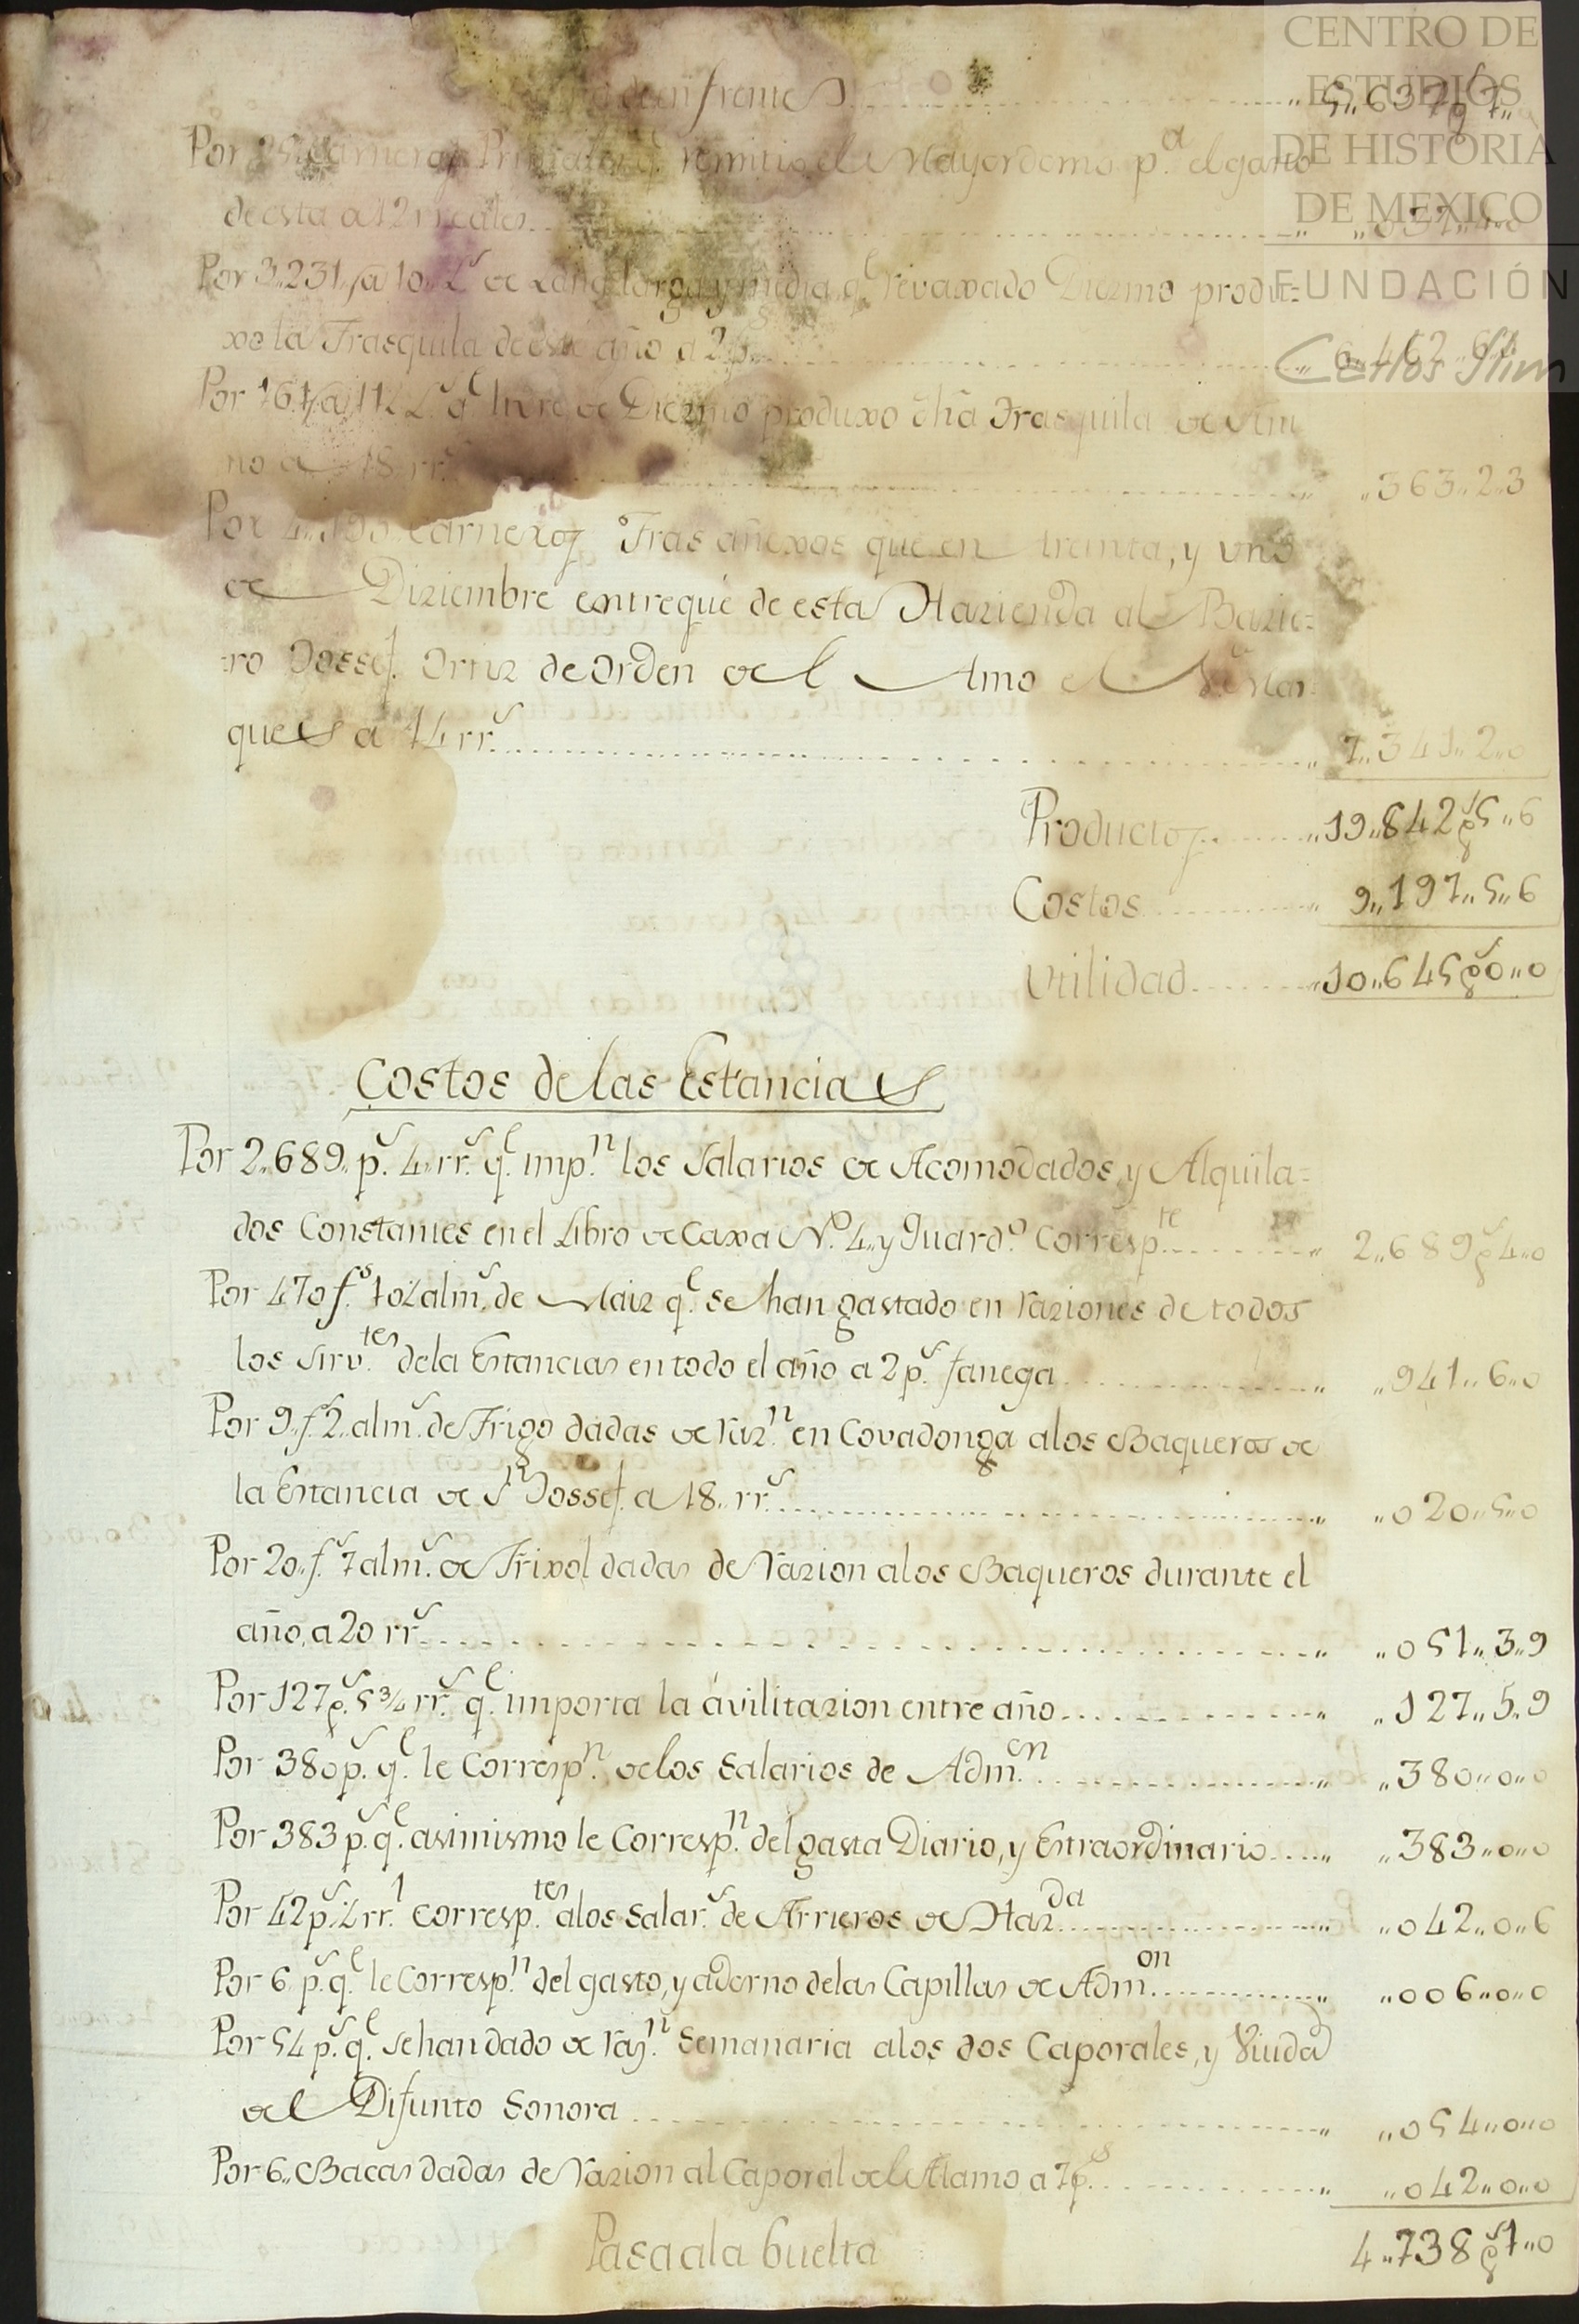 CENTRO DE
ESTUDIOS
DE HISTORIA
DE MEXICO
FUNDACIÓN
Carlos Slim
de enfrente 5,,637
Por Carneros Primales q.e remitio el Mayordomo p.a el gasto
de esta a 12 reales ,,037,,4,,0
Por 3,,231,,@ 10 L.s de Lana larga y media q.e revaxado Diezmo produ=
xo la Trasquila de este año a 2 p.s 6,,462,,6
Por 161,,@ 11 L.s q.e libre de Diezmo produxo dhã Trasquila de Añi
no a 18 rr.s ,,363,,2,,3
Por 4,,195 Carneros Tras añexos que en treinta, y uno
de Diziembre entregué de esta Hazienda al Bazie=
=ro Jossef. Ortiz de orden de el Amo el S.r Mar
ques a 14 rr.s 7,,341,,2,,0
Productos ,,19,,842 p.s 5,,6
Costos 9,,197,,5,,6
Utilidad ,,10,,645 p.s 0,,0
Costos de las Estancias
Por 2,,689,, p.s 4,, rr.s q.e imp.n los Salarios de Acomodados, y Alquila=
dos Constantes en el Libro de Caxa N.o 4,, y Quard.o Corresp.te 2,,689 p.s 4,,0
Por 470 f.s 10½ alm.s de Maiz q.e se han gastado en raziones de todos
los Sirv.tes de la Estancias en todo el año a 2 p.s fanega ,,941,,6,,0
Por 9,, f.s 2,, alm.s de Trigo dadas de raz.n en Covadonga a los Baqueros de
la Estancia de S.n Jossef. a 18,, rr.s ,,020,,5,,0
Por 20,, f.s 7 alm.s de Frixol dadas de Razion a los Baqueros durante el
año, a 20 rr.s ,,051,,3,,9
Por 127 p.s 5¾ rr.s q.e importa la ávilitazion entre año ,,127,,5,,9
Por 380 p.s q.e le corresp.n de los Salarios de Adm.on ,,380,,0,,0
Por 383 p.s q.e asimismo le Corresp.n del gasta Diario, y Extraordinario ,,383,,0,,0
Por 42 p.s ½ rr.l corresp.tes a los Salar.s de Arrieros de Haz.da ,,042,,0,,6
Por 6 p.s q.e le Corresp.n del gasto, y adorno de las Capillas de Adm.on ,,006,,0,,0
Por 54 p.s q.e se han dado de raz.n Semanaria a los dos Caporales, y Viuda
de el Difunto Sonora ,,054,,0,,0
Por 6,, Bacas dadas de Razion al Caporal de el Alamo a 7 p.s ,,042,,0,,0
Pasa a la buelta 4,,738 p.s 1,,0